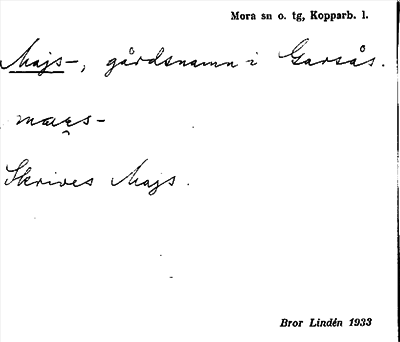 Mora sn o. tg, Kopparb. l.
Majs-, gårdsnamn i Garsås.
mae̯s-
Skrives Majs.
Bror Lindén 1933